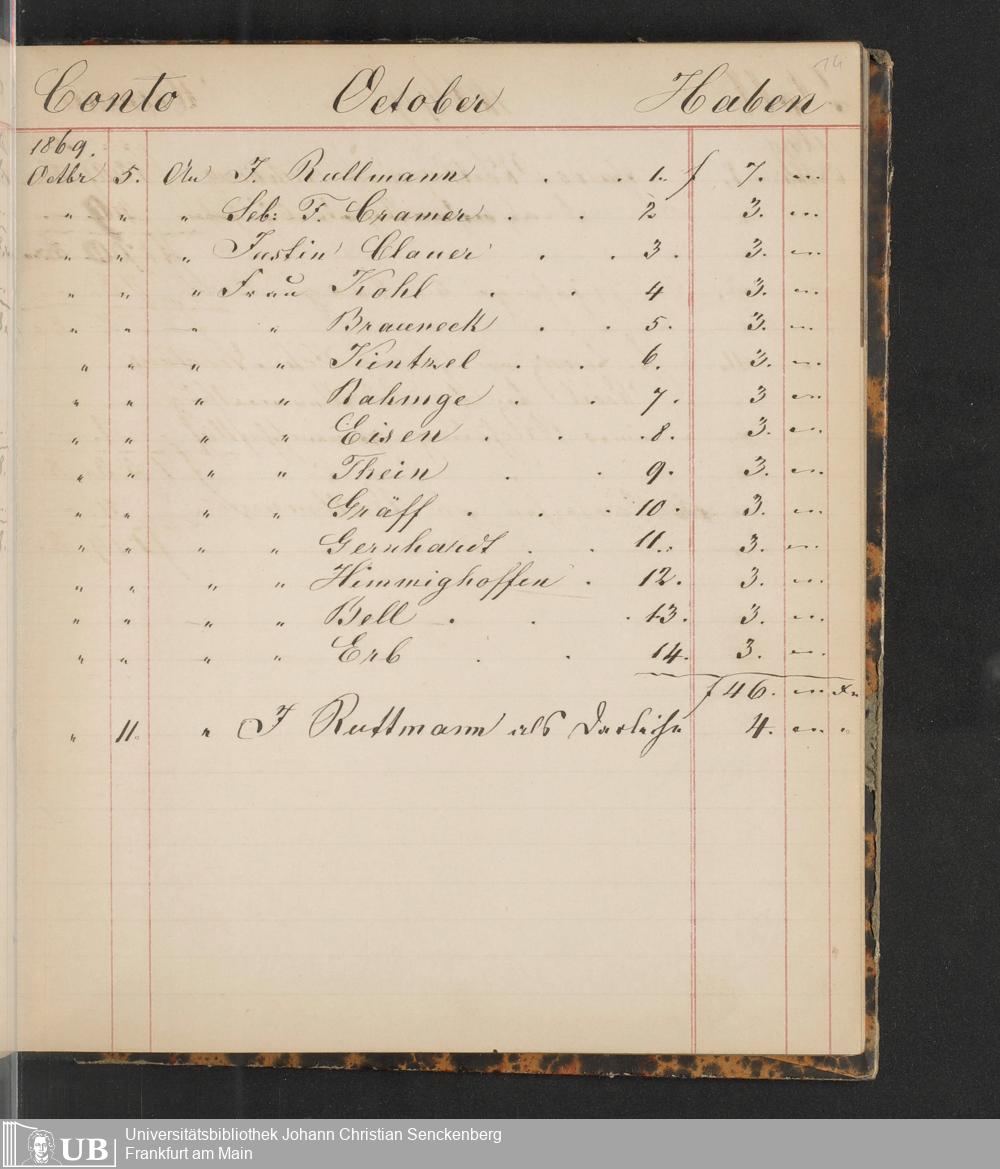 14
Conto October Haben
1869.
Octbr 5. An J. Rullmann . . 1. f 7. "
" " " Seb: F. Cramer . . 2 3. "
" " " Justin Clauer . . 3. 3. "
" " " Frau Kohl . . 4 3. "
" " " " Brauneck . . 5. 3. "
" " " " Kintzel . . 6. 3. "
" " " " Rahmge . . 7. 3 "
" " " " Eisen . . 8. 3. "
" " " " Thein . . 9. 3. "
" " " " Gräff . . . 10. 3. "
" " " " Gernhardt . . 11. 3. "
" " " " Himmighoffen . 12. 3. "
" " " " Bell . . . 13. 3. "
" " " " Erb . . 14. 3. "
f 46. "
" 11. " J Ruttmann als Darleihe 4. " "
UB Universitätsbibliothek Johann Christian Senckenberg
Frankfurt am Main